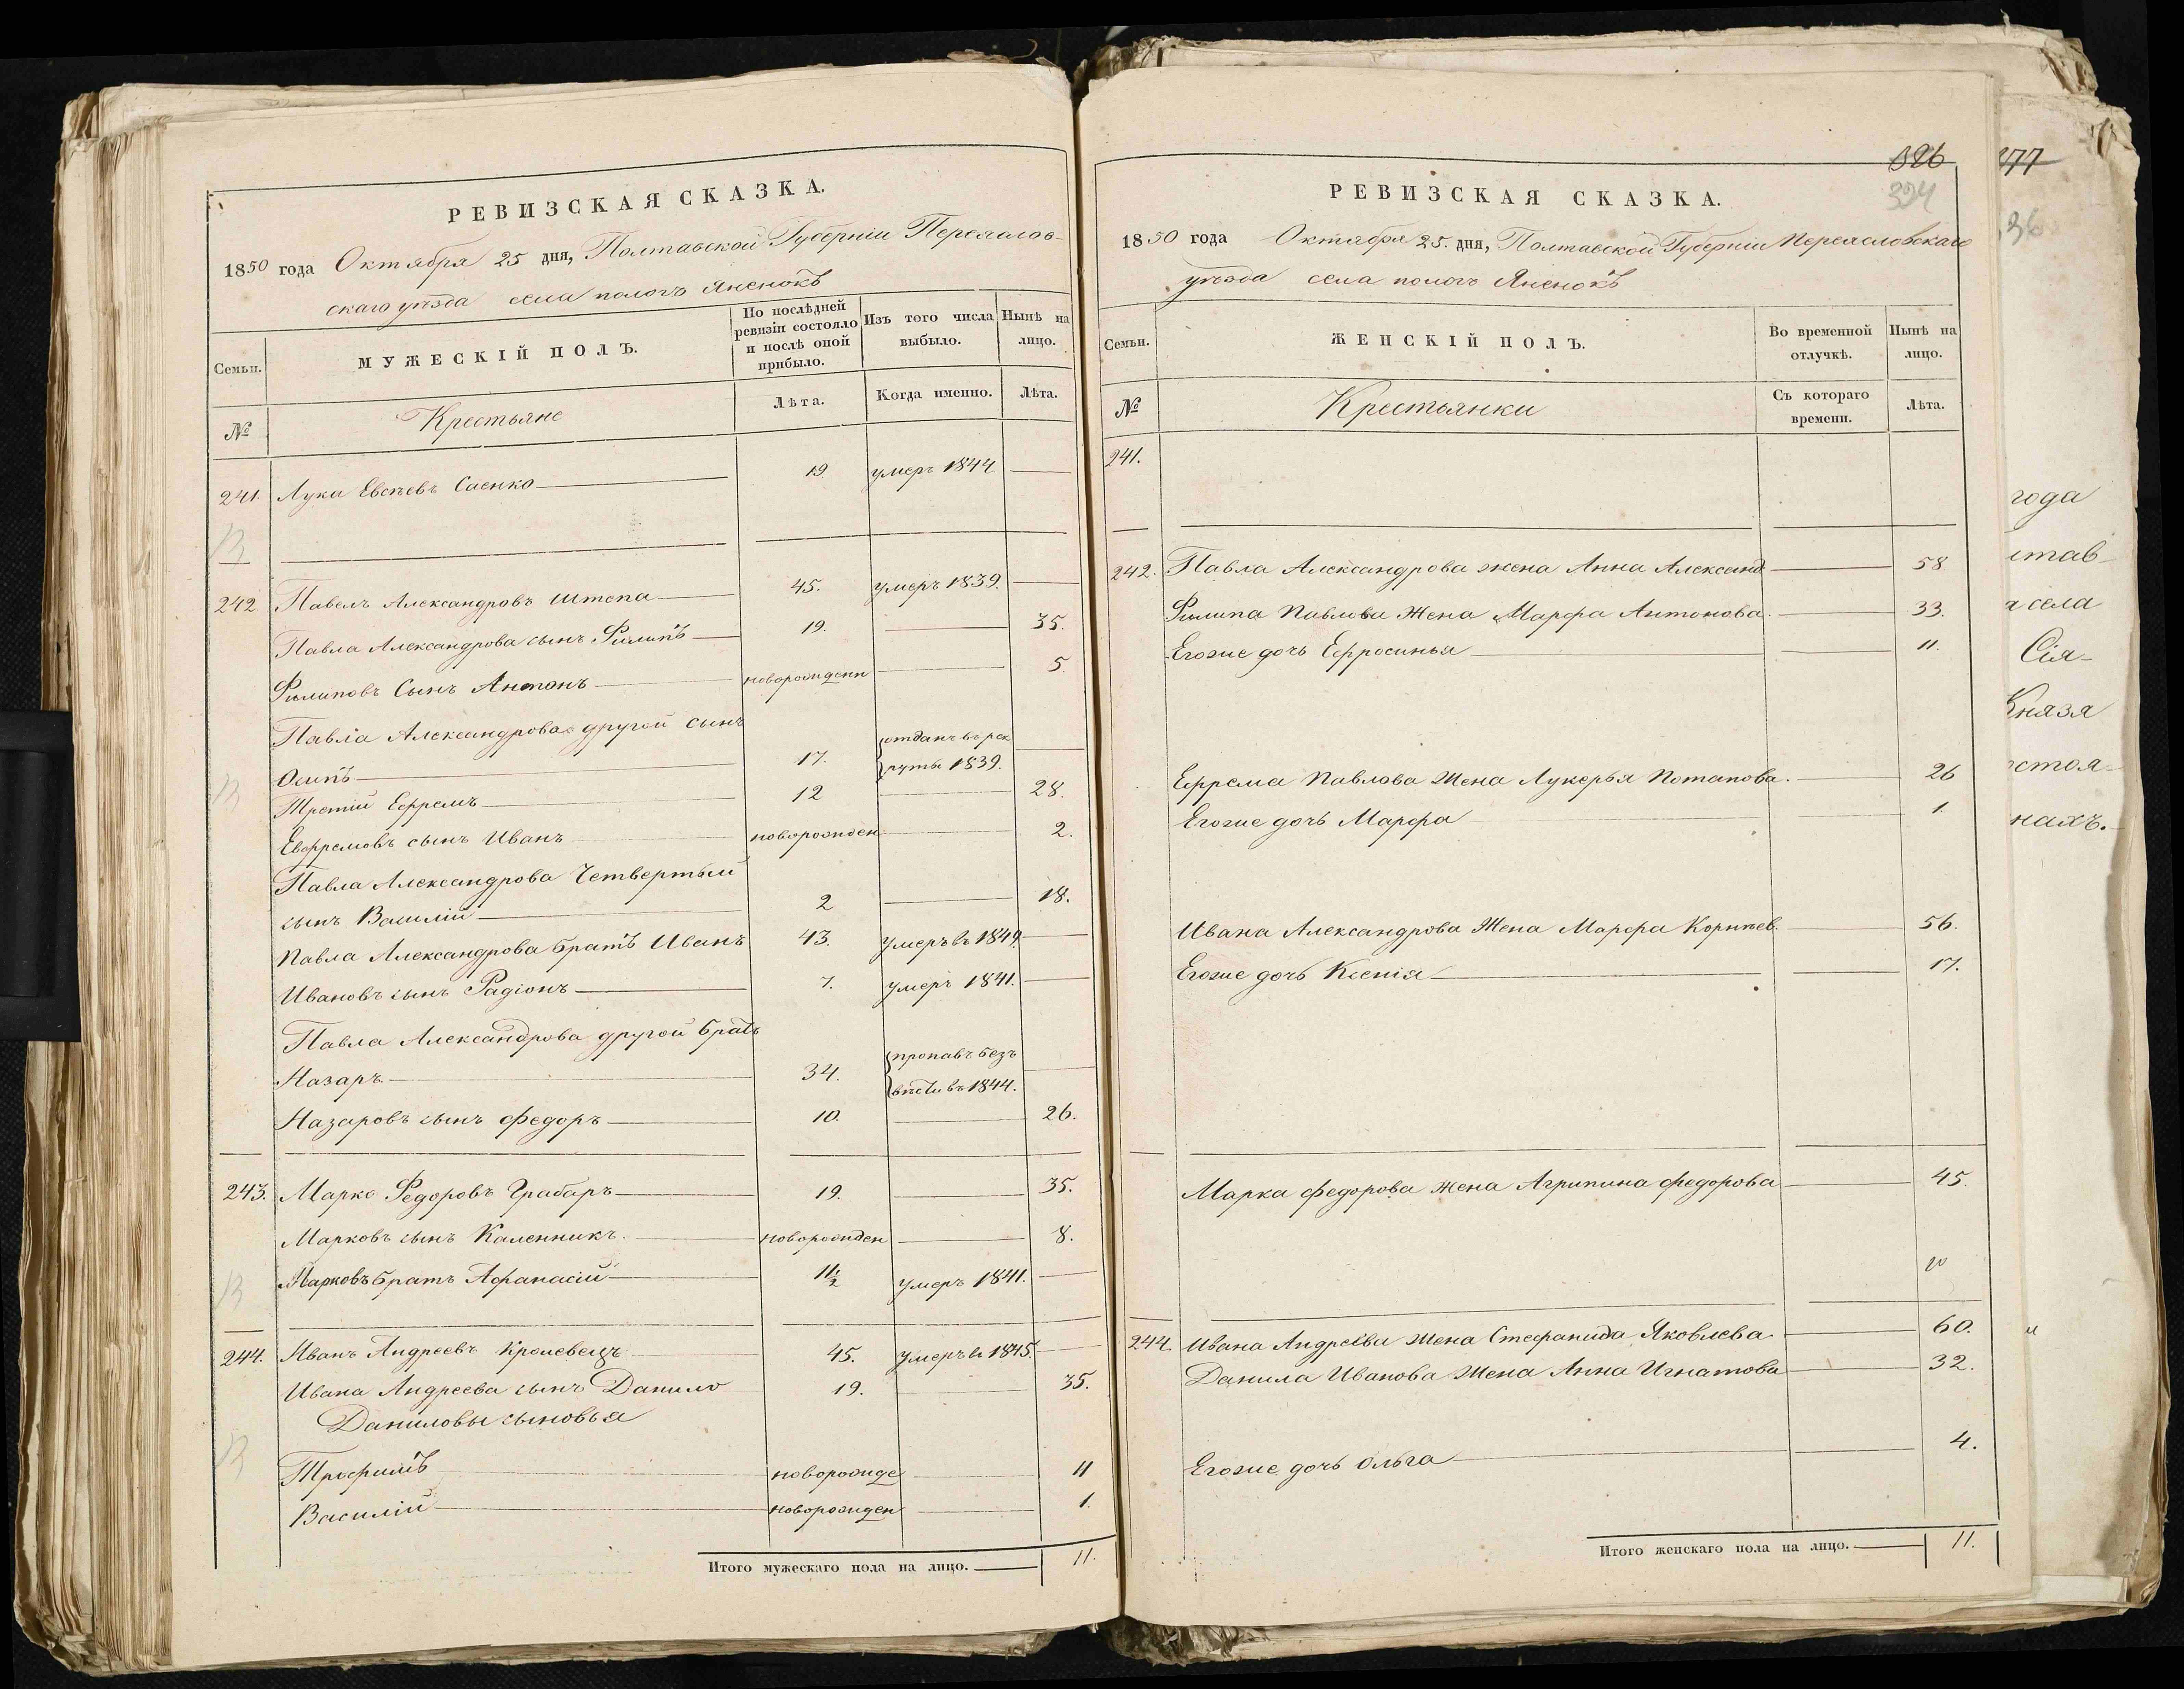 РЕВИЗСКАЯ СКАЗКА.
1850 года Октября 25 дня, Полтавской Губерніи Переяслов-
скаго уѣзда села пологъ Яненокъ
Семьи.
МУЖЕСКІЙ ПОЛЪ.
По послѣдней ревизіи состояло и послѣ оной прибыло.
Изъ того числа выбыло.
Нынѣ на лицо.
№
Крестьяне
Лѣта.
Когда именно.
Лѣта.
241. Лука Евсѣевъ Саенко 19 умеръ 1844
242 Павелъ Александровъ Штепа 45. умеръ 1839.
Павла Александрова сынъ Филипъ 19. 35.
Филиповъ Сынъ Антонъ новорожденн 5.
Павла Александрова другой сынъ
Осипъ 17. отданъ въ рек
руты 1839.
Третій Ефремъ 12 28.
Евфремовъ сынъ Иванъ новорожден 2.
Павла Александрова Четвертый
сынъ Василій 2 18.
Павла Александрова братъ Иванъ 43. умеръ въ 1849.
Ивановъ сынъ Радіонъ 7. умеръ 1841.
Павла Александрова другой братъ
Назаръ 34. пропавъ безъ
вѣсти въ 1844.
Назаровъ сынъ Федоръ 10. 26.
243. Марко Федоровъ Грабаръ 19. 35.
Марковъ сынъ Каленникъ. новорожден 8.
Марковъ братъ Афанасій 11½ умеръ 1841.
244. Иванъ Андреевъ Кролевецъ 45. умеръ въ 1845.
Ивана Андреева сынъ Данило 19. 35.
Даниловы сыновья
Трофимъ новорожде 11
Василій новорожден 1.
Итого мужескаго пола на лицо. 11.
326
324
РЕВИЗСКАЯ СКАЗКА.
1850 года Октября 25. дня, Полтавской Губерніи Переясловскаго
уѣзда села пологъ Яненокъ
Семьи.
ЖЕНСКІЙ ПОЛЪ.
Во временной отлучкѣ.
Нынѣ на лицо.
№
Крестьянки
Съ котораго времени.
Лѣта.
241.
242. Павла Александрова жена Анна Александ 58
Филипа Павлова Жена Марфа Антонова. 33.
Егоже дочь Ефросинья 11.
Ефрема Павлова Жена Лукерья Потапова. 26
Егоже дочь Марфа 1.
Ивана Александрова Жена Марфа Корнѣев. 56.
Егоже дочь Ксенія 17.
Марка Федорова жена Агрипина Федорова 45.
244. Ивана Андреева Жена Стефанида Яковлева. 60.
Данила Иванова Жена Анна Игнатова 32.
Егоже дочь Ольга 4.
Итого женскаго пола на лицо. 11.
77
36
года
лтав-
села
Сія-
Князя
стоя-
нахъ.